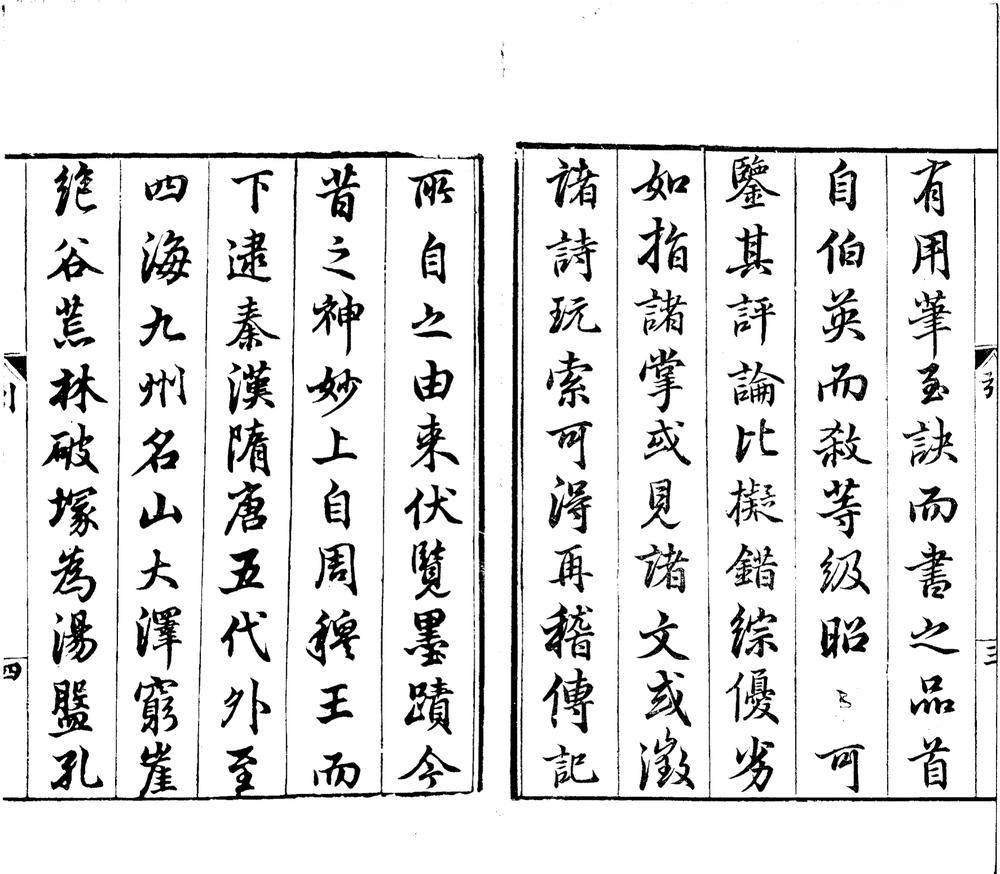 有用筆至訣而書之品首
自伯英而敘等級昭昭可
鑒其評論比擬錯綜優劣
如指諸掌或見諸文或徵
諸詩玩索可得再稽傳記
引
三
所自之由来伏覽墨蹟今
昔之神妙上自周穆王而
下逮秦漢隋唐五代外至
四海九州名山大澤窮崖
絶谷荒林破塚為湯盤孔
引
四